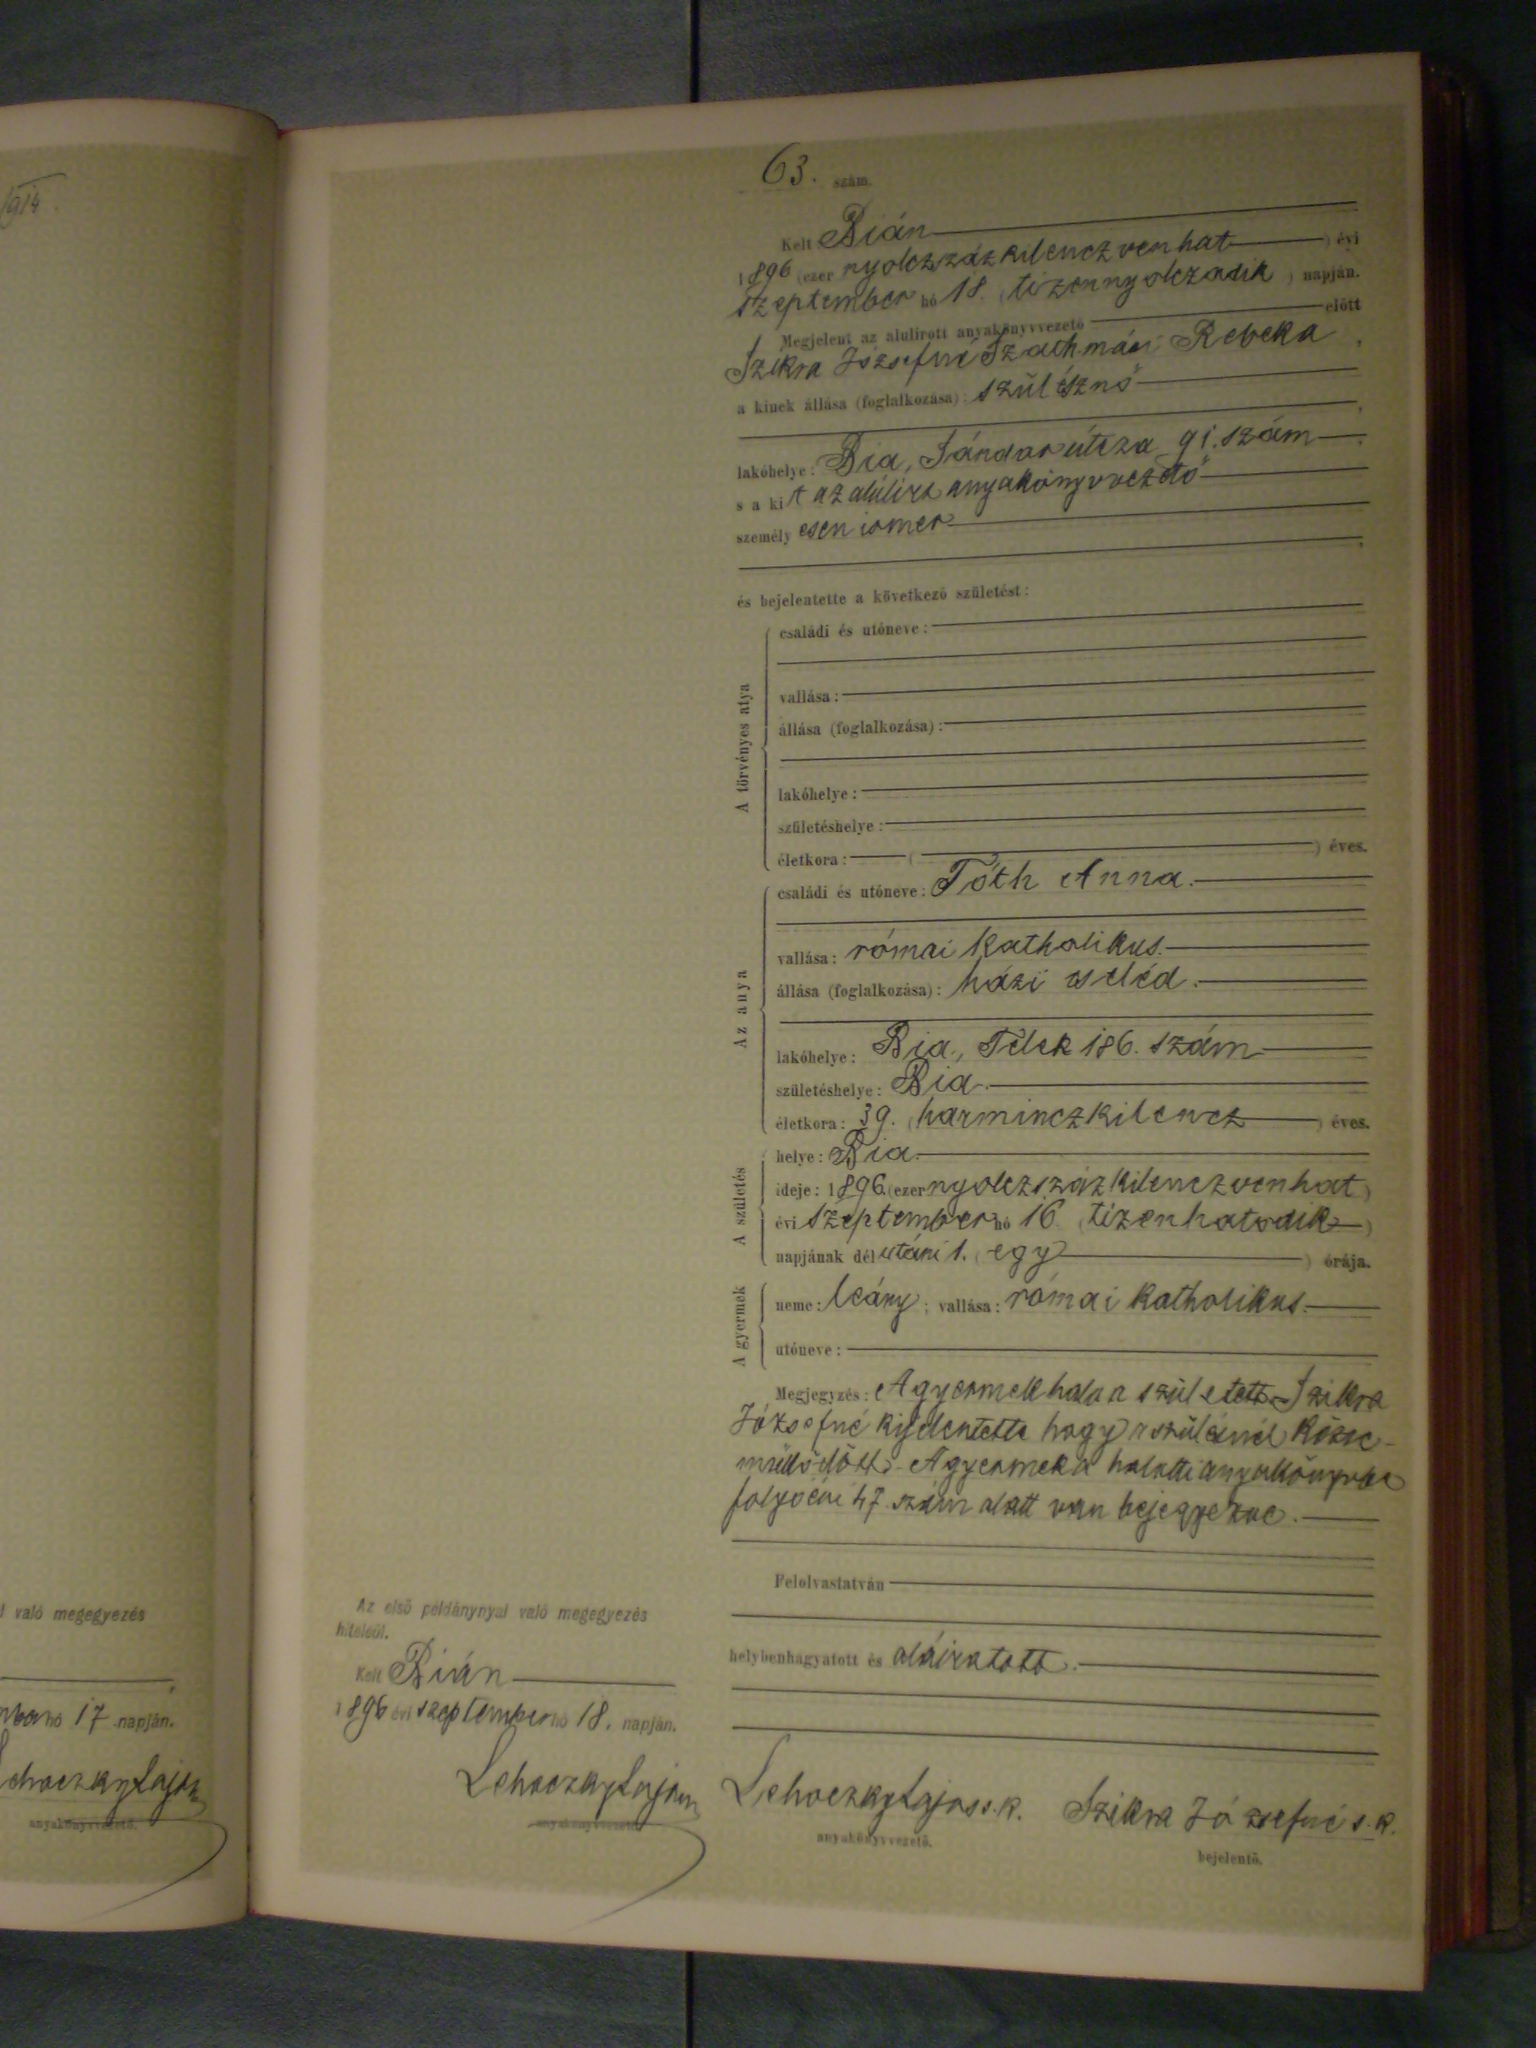 1914.
63. szám.
Kelt Bián
1896 (ezer nyolczszázkilenczvenhat) évi
szeptember hó 18. (tizennyolczadik) napján.
Megjelent az alulirott anyakönyvvezető előtt
Szikra Józsefné Szathmári Rebeka,
a kinek állása (foglalkozása): szülésznő
lakóhelye: Bia, Sándor útcza 91. szám
s a kit az alulírt anyakönyvvezető
személyesen ismer
és bejelentette a következő születést:
A törvényes atya
családi és utóneve:
vallása:
állása (foglalkozása):
lakóhelye:
születéshelye:
életkora: ( ) éves.
Az anya
családi és utóneve: Tóth Anna.
vallása: római katholikus.
állása (foglalkozása): házi cseléd.
lakóhelye: Bia, Telek 186. szám
születéshelye: Bia.
életkora: 39. (harminczkilencz) éves.
A születés
helye: Bia.
ideje: 1896 (ezer nyolczszázkilenczvenhat)
évi szeptember hó 16. (tizenhatodik)
napjának délutáni 1. (egy) órája.
A gyermek
neme: leány; vallása: római katholikus.
utóneve:
Megjegyzés: A gyermek halva született. Szikra
Józsefné kijelentette hogy a szülésnél közre-
működött. A gyermek a halotti anyakönyvbe
folyó évi 47. szám alatt van bejegyezve.
Felolvastatván
helybenhagyatott és aláiratott.
Lehoczky Lajos s. k.
anyakönyvvezető.
Szikra Józsefné s. k.
bejelentő.
Az első példánynyal való megegyezés
hiteléül.
Kelt Bián
1896 évi szeptember hó 18. napján.
Lehoczky Lajos
anyakönyvvezető.
való megegyezés
hó 17 napján.
Lehoczky Lajos
anyakönyvvezető.